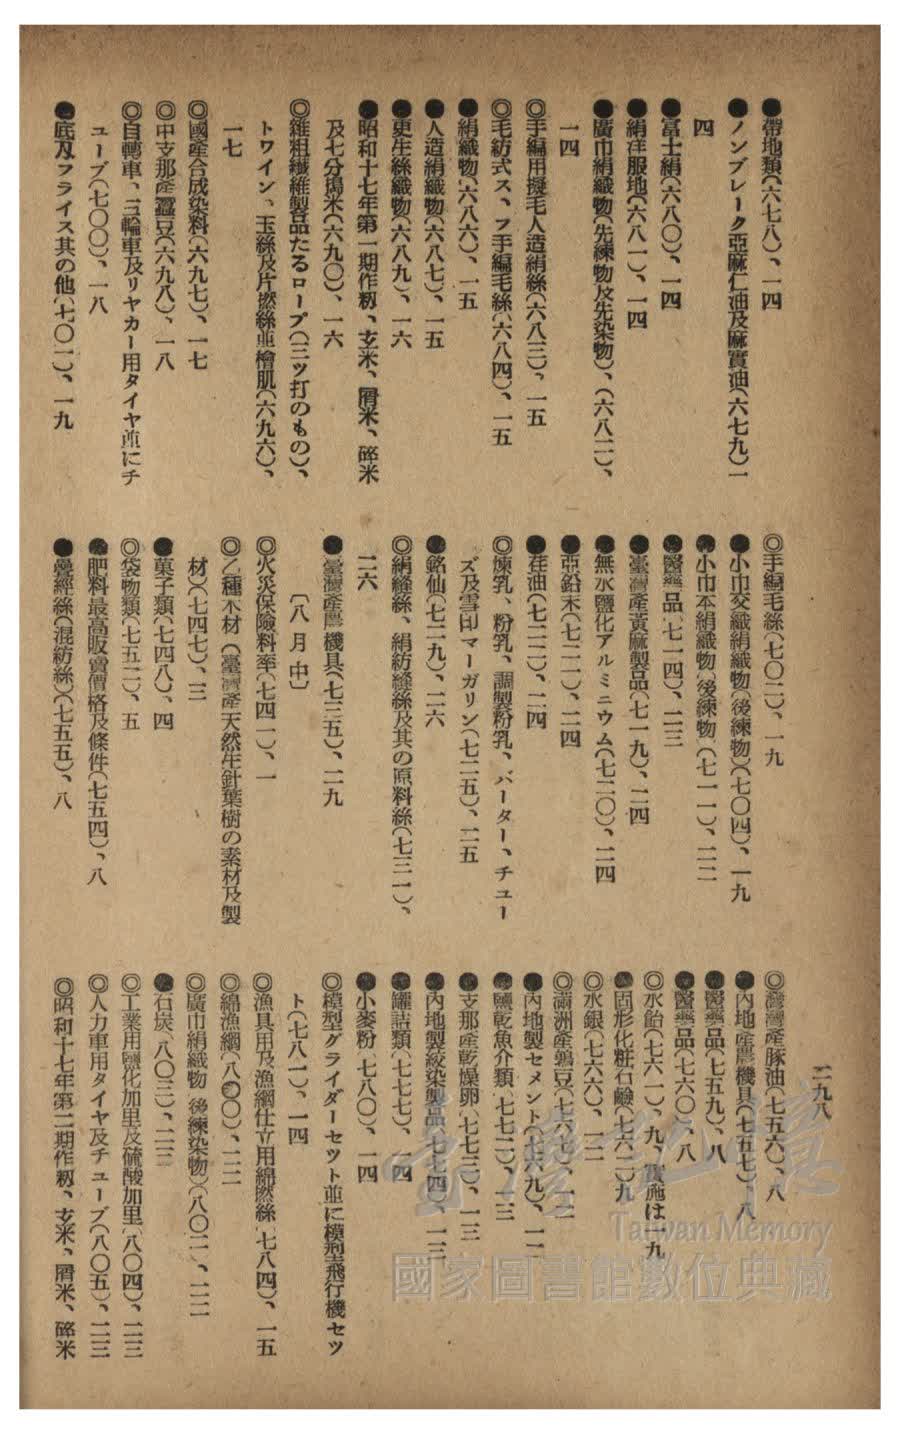 二九八
●帶地類(六七八)、一四
●ノンブレーク亞麻仁油及麻實油(六七九)一
四
●富士絹(六八〇)、一四
●絹洋服地(六八一)、一四
●廣巾絹織物(先練物及先染物)、(六八二)、
一四
◎手編用擬毛人造絹絲(六八三)、一五
◎毛紡式ス、フ手編毛絲(六八四)、一五
●絹織物(六八六)、一五
●人造絹織物(六八七)、一五
●更生絲織物(六八九)、一六
●昭和十七年第一期作籾、玄米、屑米、碎米
及七分搗米(六九〇)、一六
◎雜粗纖維製品たるロープ(三ツ打のもの)、
トワイン、玉絲及片撚絲並檜肌(六九六)、
一七
◎國產合成染料(六九七)、一七
◎中支那產蠶豆(六九八)、一八
◎自轉車、三輪車及リヤカー用タイヤ並にチ
ューブ(七〇〇)、一八
●底及フライス其の他(七〇一)、一九
◎手編毛絲(七〇二)、一九
●小巾交織絹織物(後練物)(七〇四)、一九
●小巾本絹織物(後練物)(七一一)、二二
●醫藥品(七一四)、二三
●臺灣產黃麻製品(七一九)、二四
●無水鹽化アルミニウム(七二〇)、二四
●亞鉛末(七二一)、二四
●荏油(七二二)、二四
◎煉乳、粉乳、調製粉乳、バーター、チュー
ズ及雪印マーガリン(七二五)、二五
●銘仙(七二九)、二六
◎絹縫絲、絹紡縫絲及其の原料絲(七三一)、
二六
●臺灣產農機具(七三五)、二九
〔八月中〕
◎火災保險料率(七四一)、一
◎乙種木材(臺灣產天然生針葉樹の素材及製
材)(七四七)、三
●菓子類(七四八)、四
◎袋物類(七五二)、五
●肥料最高販賣價格及條件(七五四)、八
●疊經絲(混紡絲)(七五五)、八
◎臺灣產豚油(七五六)、八
●內地產農機具(七五七)、八
●醫藥品(七五九)、八
●醫藥品(七六〇)、八
◎水飴(七六一)、九、實施は一九
●固形化粧石鹼(七六二)九
◎水銀(七六六)、一二
◎滿洲產鶉豆(七六七)、一二
●內地製セメント(七六九)、一二
●鹽乾魚介類(七七二)、一三
●支那產乾燥卵(七七三)、一三
●內地製絞染製品(七七四)、一三
●罐詰類(七七七)、一四
●小麥粉(七八〇)、一四
◎模型グライダーセット並に模型飛行機セッ
ト(七八一)、一四
◎漁具用及漁網仕立用綿撚絲(七八四)、一五
◎綿漁網(八〇〇)、二二
◎廣巾絹織物(後練染物)(八〇二)、二二
●石炭(八〇三)、二三
◎工業用鹽化加里及硫酸加里(八〇四)、二三
◎人力車用タイヤ及チューブ(八〇五)、二三
◎昭和十七年第二期作籾、玄米、屑米、碎米
臺灣記憶
Taiwan Memory
國家圖書館數位典藏